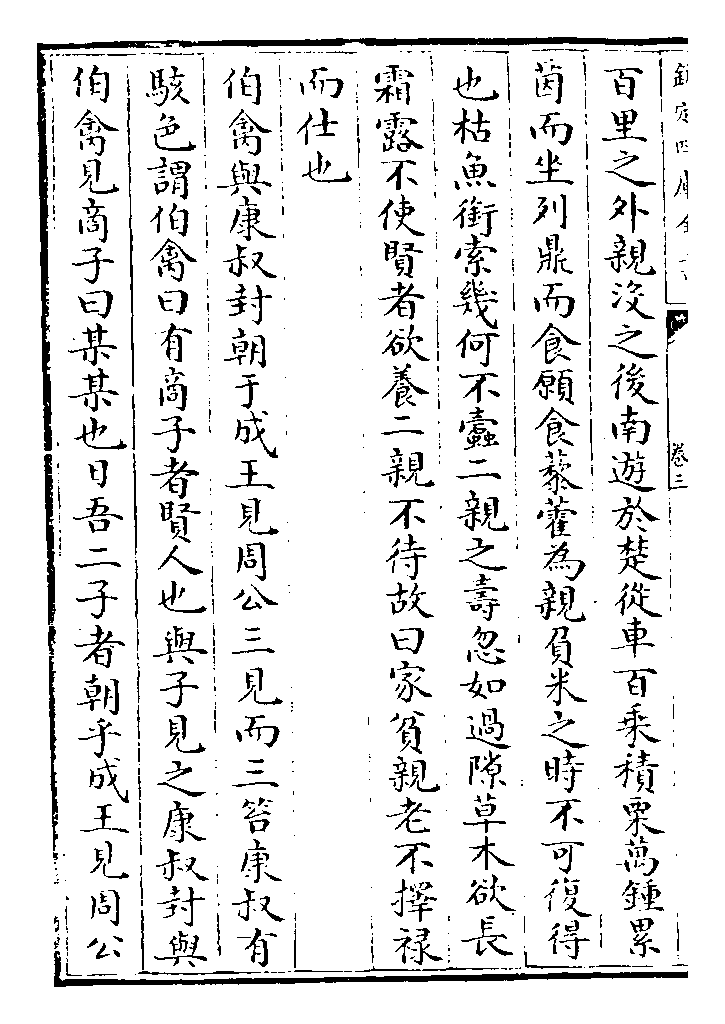 欽定四庫全書
卷三
百里之外親沒之後南遊於楚從車百乘積粟萬鍾累
茵而坐列鼎而食願食藜藿為親負米之時不可復得
也枯魚銜索幾何不蠹二親之壽忽如過隙草木欲長
霜露不使賢者欲養二親不待故曰家貧親老不擇祿
而仕也
伯禽與康叔封朝于成王見周公三見而三笞康叔有
駭色謂伯禽曰有商子者賢人也與子見之康叔封與
伯禽見商子曰某某也日吾二子者朝乎成王見周公